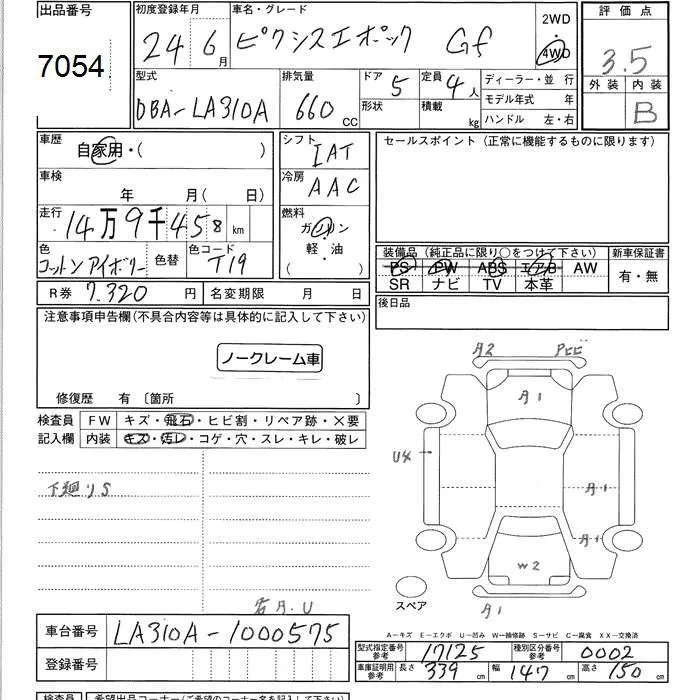 出品番号 7054
初度登録年月 24 6月
車名・グレード ピクシスエポック Gf
2WD
4WD
評価点 3.5
外装 内装 B
型式 DBA-LA310A
排気量 660 CC
ドア 5
形状
定員 4人
積載 kg
ディーラー・並 行
モデル年式 年
ハンドル 左・右
車歴 自家用・( )
車検 年 月( 日)
走行 14万9千458 km
色 コットンアイボリー 色替
色コード T19
シフト IAT
冷房 AAC
燃料 ガソリン
軽・油
( )
セールスポイント (正常に機能するものに限ります)
装備品 (純正品に限り○をつけて下さい)
PS PW ABS エアB AW
SR ナビ TV 本革
新車保証書
有・無
後日品
R券 7,320 円 名変期限 月 日
注意事項申告欄(不具合内容等は具体的に記入して下さい)
ノークレーム車
修復歴 有 〔箇所 〕
検査員 FW キズ・飛石・ヒビ割・リペア跡・×要
記入欄 内装 キズ・汚レ・コゲ・穴・スレ・キレ・破レ
下廻りS
A2
A1
U4
A1
A1
W2
A1
スペア
車台番号 LA310A-1000575
登録番号
A-キズ E-エクボ U-凹み W-補修跡 S-サビ C-腐食 XX-交換済
型式指定番号 参考 17125 種別区分番号 参考 0002
車庫証明用 参考 長さ 339 cm 幅 147 cm 高さ 150 cm
検査員 希望出品コーナー(ご希望のコーナー名を記入して下さい)